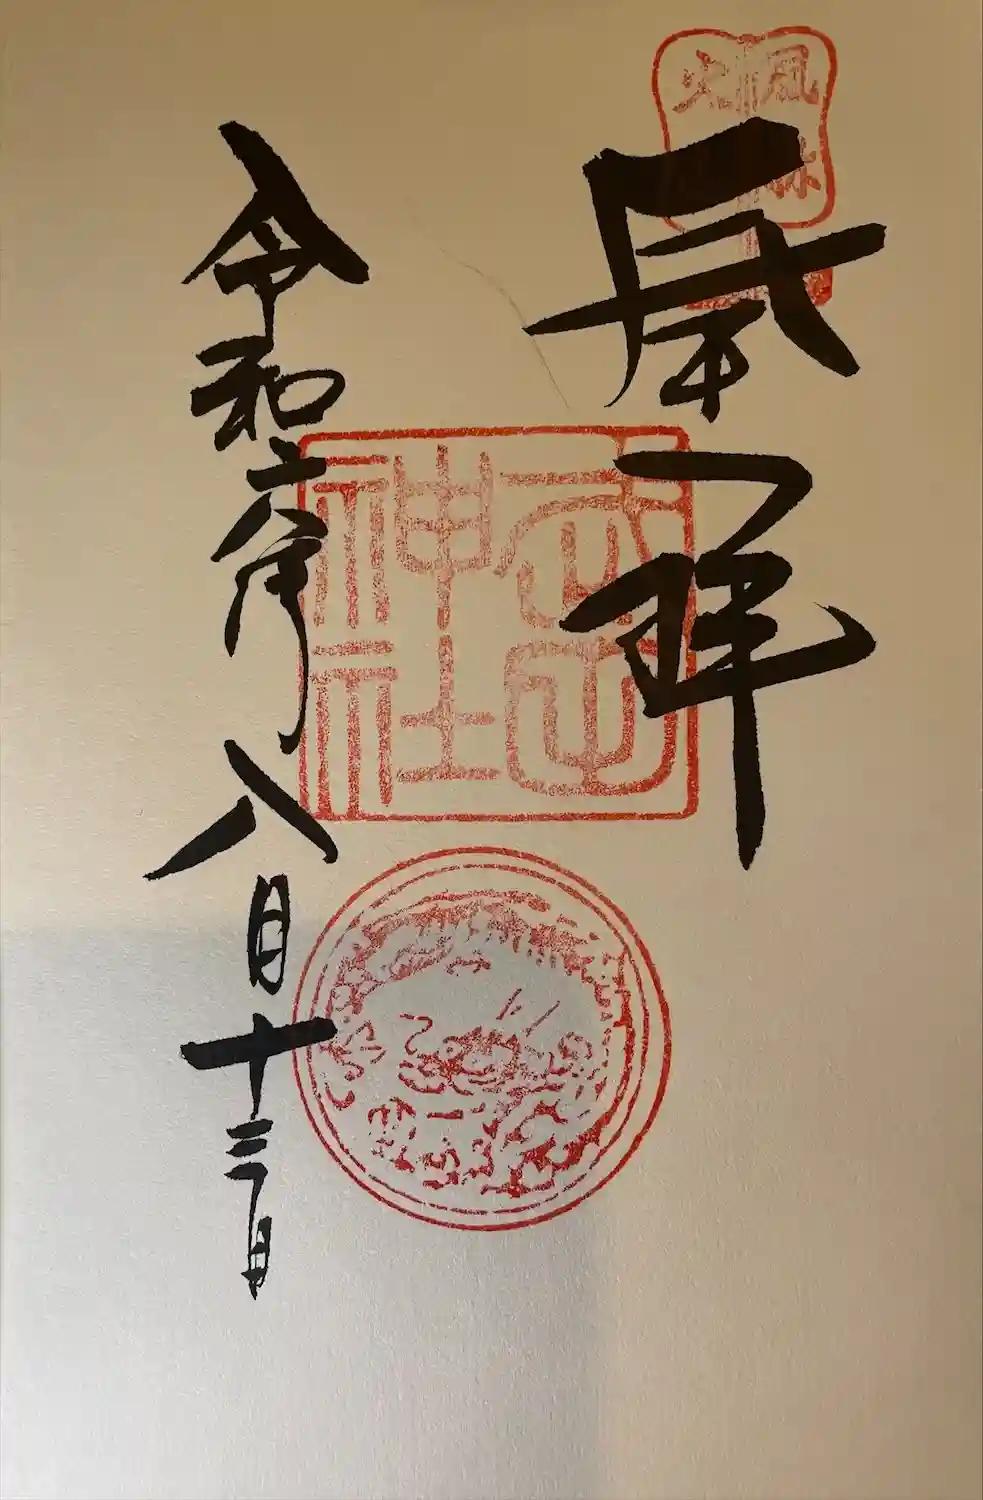 風林
火
拝
武田
神社
令和六年八月十三日